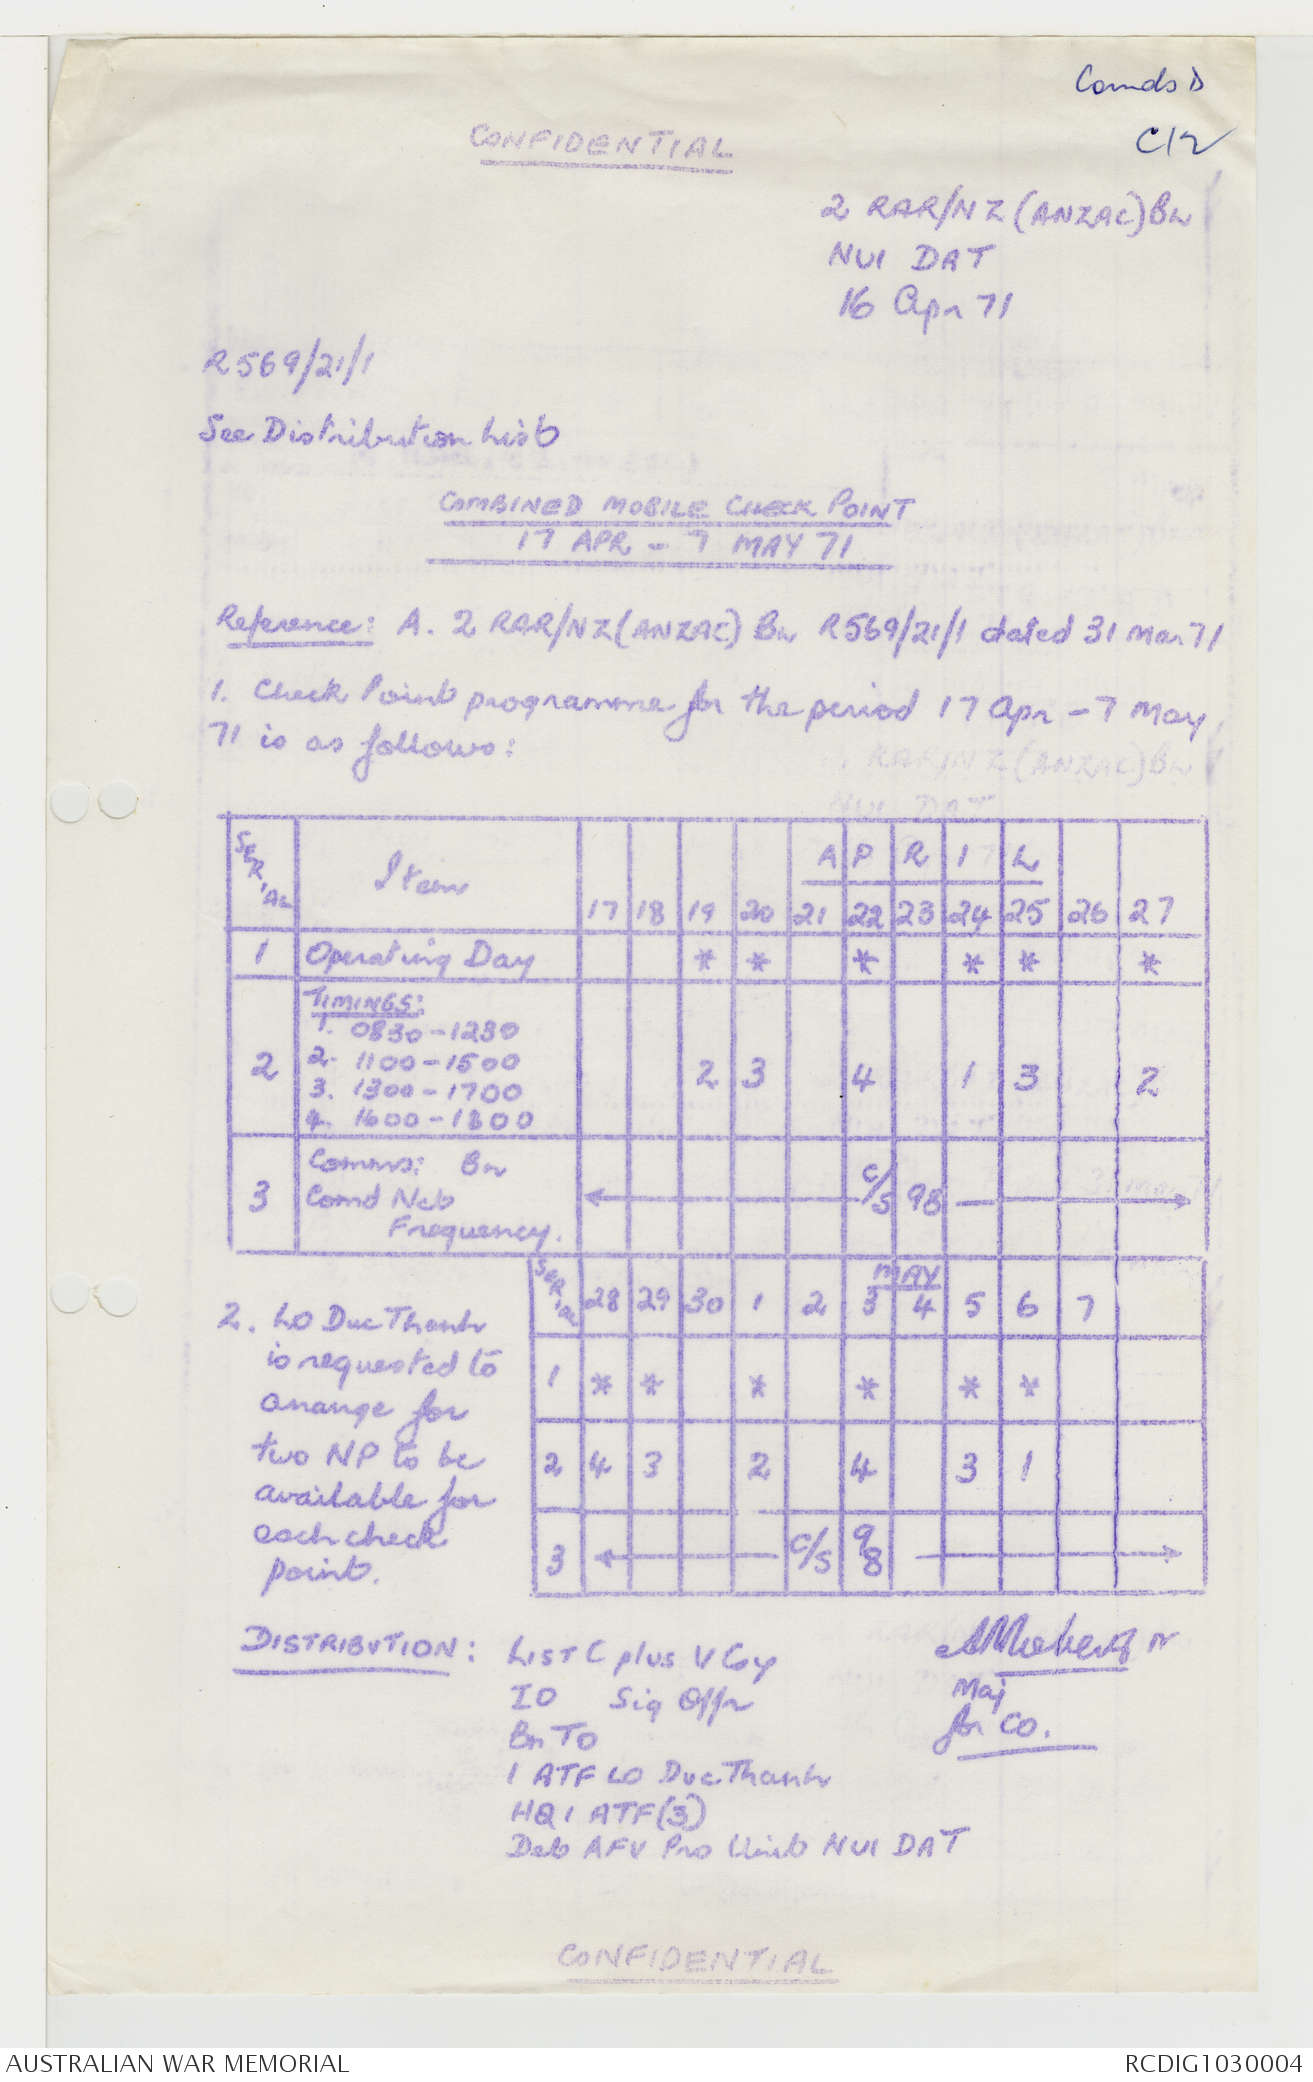 Comds D
C12
CONFIDENTIAL
2 RAR/NZ (ANZAC) Bn
NUI DAT
16 Apr 71
R569/21/1
See Distribution List
COMBINED MOBILE CHECK POINT
17 APR - 7 MAY 71
Reference: A. 2 RAR/NZ (ANZAC) Bn R569/21/1 dated 31 Mar 71
1. Check Point programme for the period 17 Apr - 7 May
71 is as follows:
RAR/NZ (ANZAC) Bn
NUI DAT
SERIAL Item A P R I L
17 18 19 20 21 22 23 24 25 26 27
1 Operating Day * * * * * *
2 TIMINGS:
1. 0830-1230
2. 1100-1500 2 3 4 1 3 2
3. 1300-1700
4. 1600-1800
3 Comms: Bn
Comd Net c/s 98
Frequency.
SERIAL MAY
28 29 30 1 2 3 4 5 6 7
1 * * * * * *
2 4 3 2 4 3 1
3 c/s 98
2. LO Duc Thanh
is requested to
arrange for
two NP to be
available for
each check
point.
DISTRIBUTION: LIST C plus V Coy
IO Sig Offr
Bn TO
1 ATF LO Duc Thanh
HQ 1 ATF (3)
Det AFV Pro Unit NUI DAT
Maj
for CO.
CONFIDENTIAL
AUSTRALIAN WAR MEMORIAL RCDIG1030004